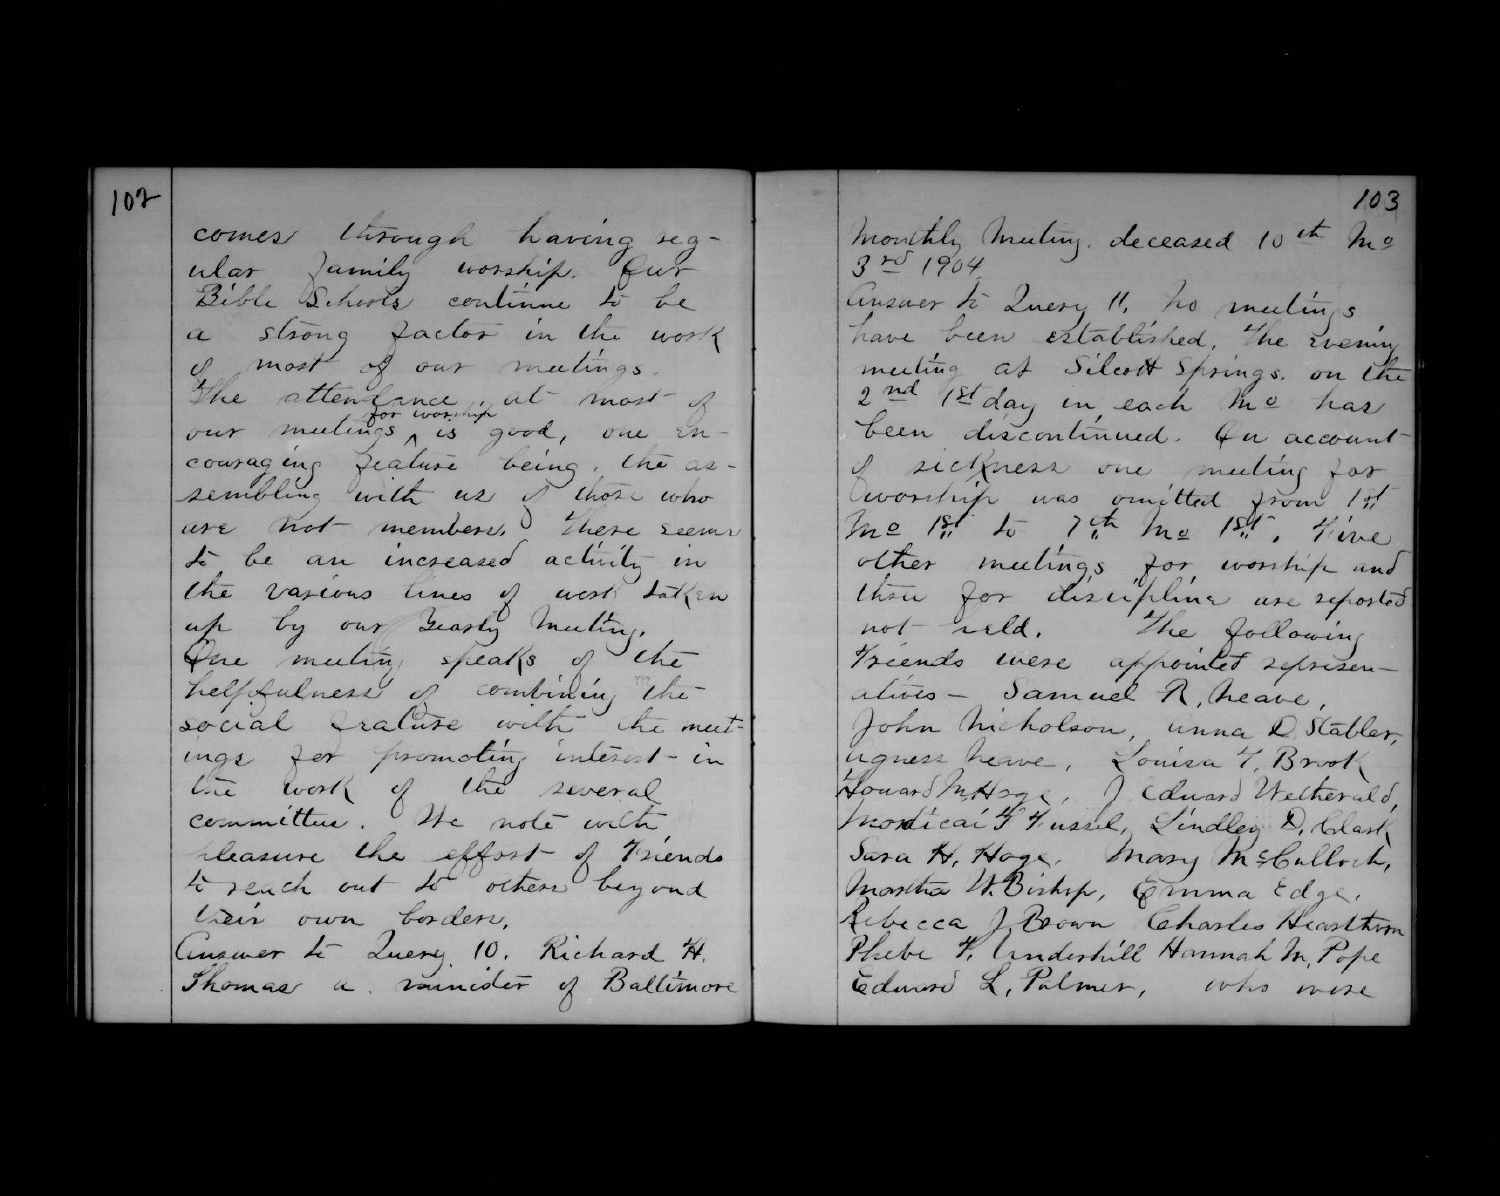 102
comes through having reg-
ular family worship. Our
Bible Schools continue to be
a strong factor in the work
of most of our meetings.
The attendance, at most of
for worship
our meetings ^ is good, one en-
couraging feature being, the as-
sembling with us of those who
are not members. There seems
to be an increased activity in
the various lines of work taken
up by our Yearly Meeting.
One meeting speaks of the
helpfulness of combining the
social feature with the meet-
ings for promoting interest in
the work of the several
committee. We note with
pleasure the effort of Friends
to reach out to others beyond
their own borders.
Answer to Query 10. Richard H.
Thomas a minister of Baltimore
103
Monthly Meeting. deceased 10th Mo
3rd 1904
Answer to Query 11. No meetings
have been established. The evening
meeting at Silcott Springs. on the
2nd 1st day in each Mo has
been discontinued. On account
of sickness one meeting for
worship was omitted from 1st
Mo 1st to 7th Mo 1st. Five
other meetings for worship and
three for discipline are reported
not held. The following
Friends were appointed represen-
atives - Samuel R. Neave,
John Nicholson, Anna D. Stabler,
Agness Neave, Louisa F. Brook
Howard M. Hoge, J Edward Wetherald,
Mordicai F Fussel, Lindley D. Clark
Sara H. Hoge. Mary McCulloch,
Martha W. Bishop, Emma Edge.
Rebecca J Brown Charles Hearthorn
Phebe F. Underhill Hannah M. Pope
Edward L. Palmer, who were